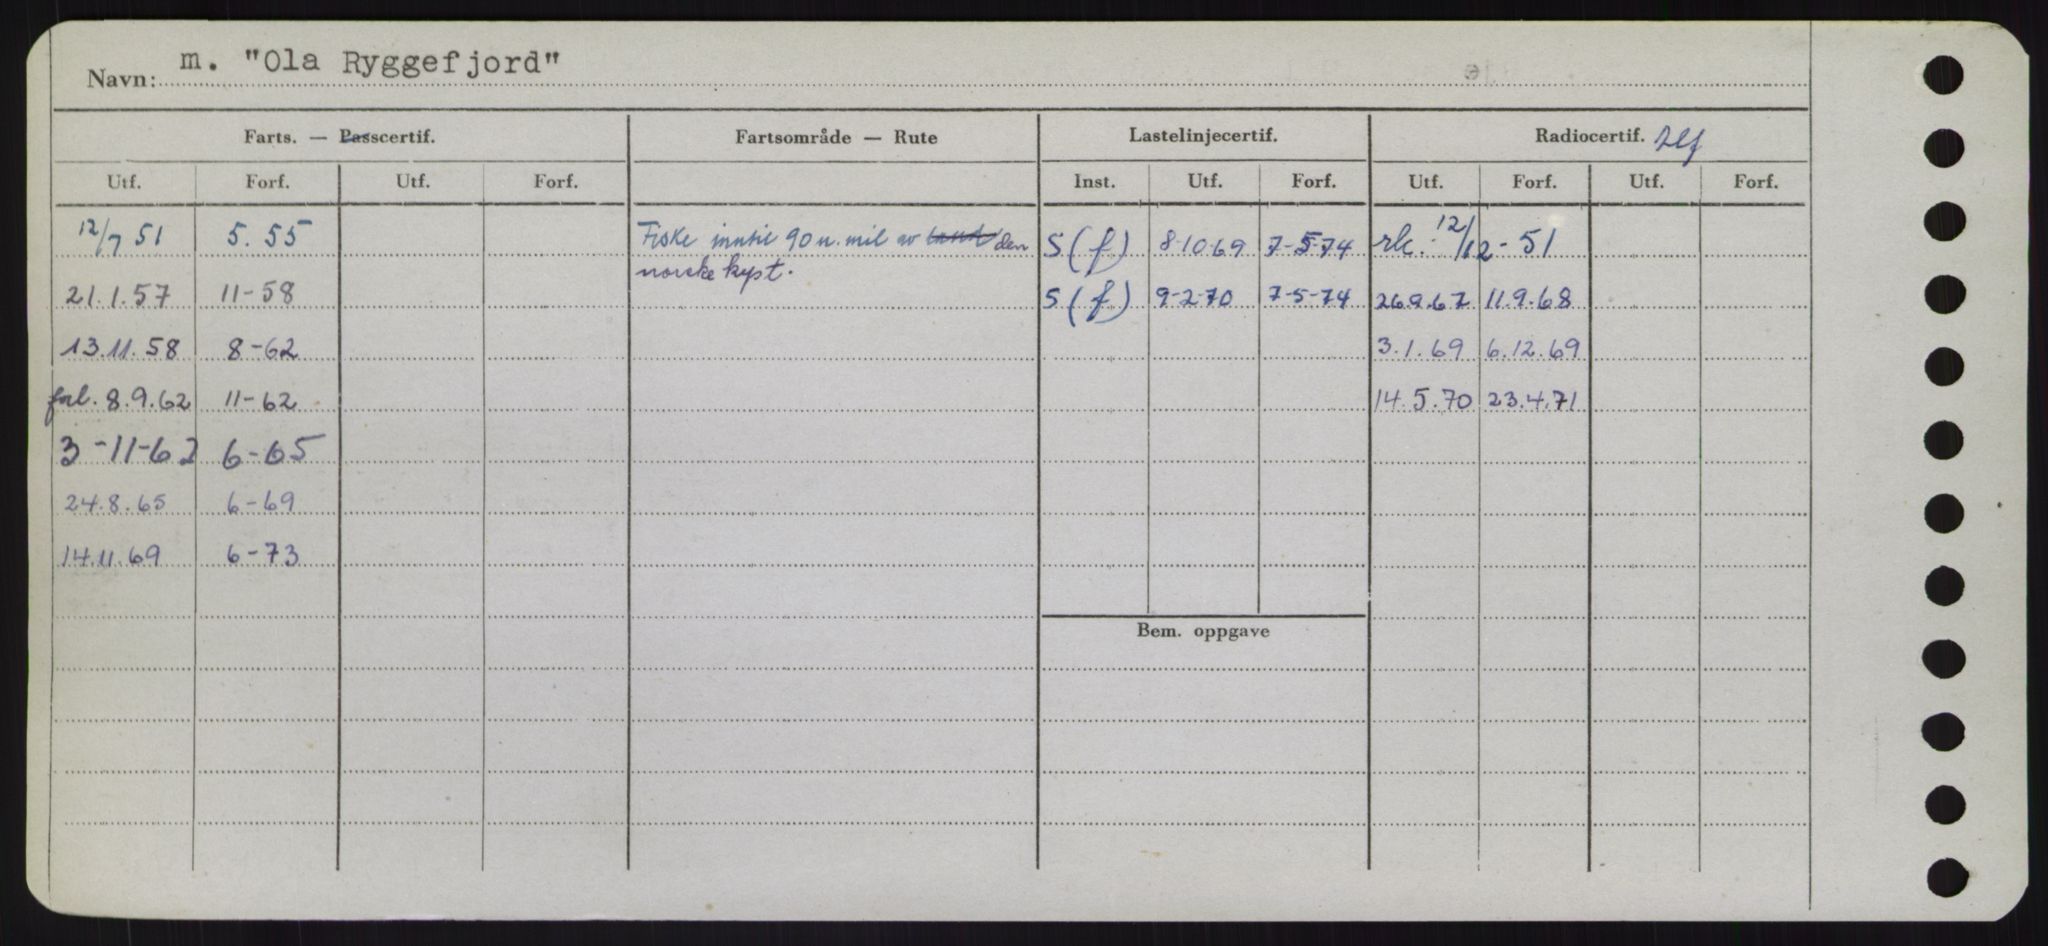 Navn: m. "Ola Ryggefjord"
Farts. — Passcertif. Fartsområde — Rute Lastelinjecertif. Radiocertif. Tlf
Utf. Forf. Utf. Forf. Inst. Utf. Forf. Utf. Forf. Utf. Forf.
12/7 51 5.55 Fiske inntil 90 n. mil av land den S (f) 8-10-69 7-5-74 rk. 12/12-51
norske kyst.
21.1.57 11-58 S (f) 9-2-70 7-5-74 26.9.67 11.9.68
13.11.58 8-62 3.1.69 6.12.69
forl. 8.9.62 11-62 14.5.70 23.4.71
3-11-62 6-65
24.8.65 6-69
14.11.69 6-73
Bem. oppgave